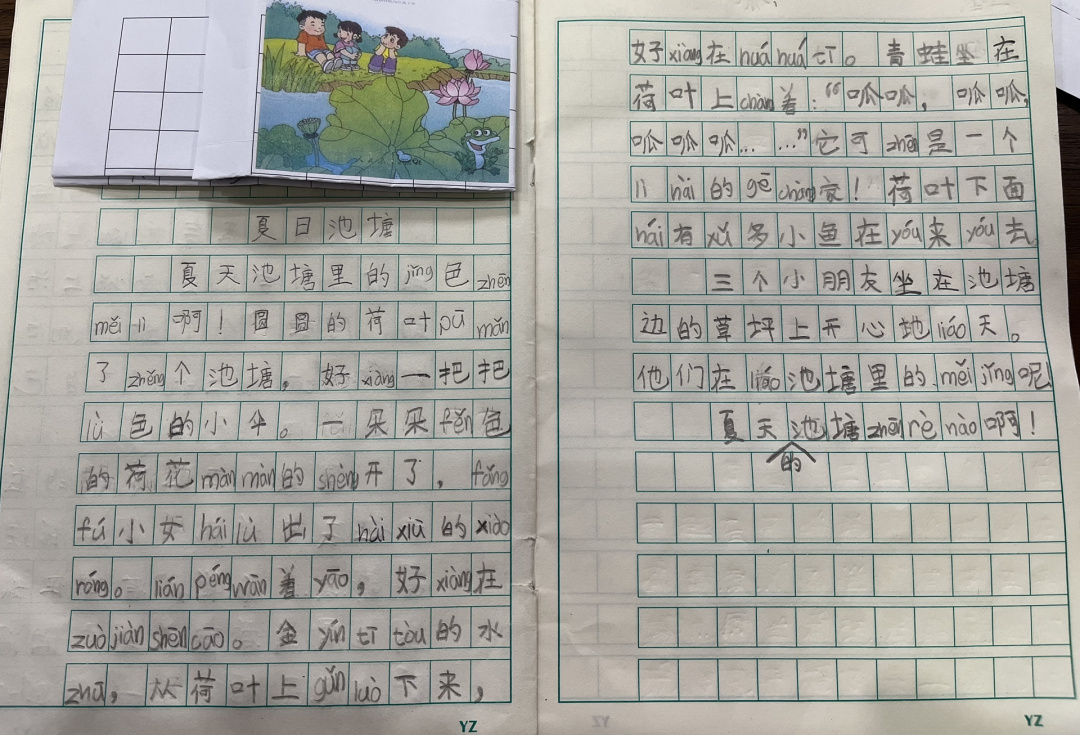 夏日池塘
夏天池塘里的jǐng色zhēn
měi lì啊！圆圆的荷叶pū mǎn
了zhěng个池塘，好xiàng一把把
lǜ色的小伞。一朵朵fěn色
的荷花màn màn的shèng开了，fǎng
fú小女hái lù出了hài xiū的xiào
róng。lián péng wān着yāo，好xiàng在
zuò jiàn shēn cāo。金yín tī tòu的水
zhū，从荷叶上gǔn luò下来，
好xiang在huá huá tī。青蛙坐在
荷叶上chàng着：“呱呱，呱呱，
呱呱呱……”它可zhēn是一个
lì hài的gē chàng家！荷叶下面
hái有xǔ多小鱼在yóu来yóu去
三个小朋友坐在池塘
边的草坪上开心地liáo天。
他们在liáo池塘里的měi jǐng呢
夏天池塘zhēn rè nào啊！
的
YZ
YZ